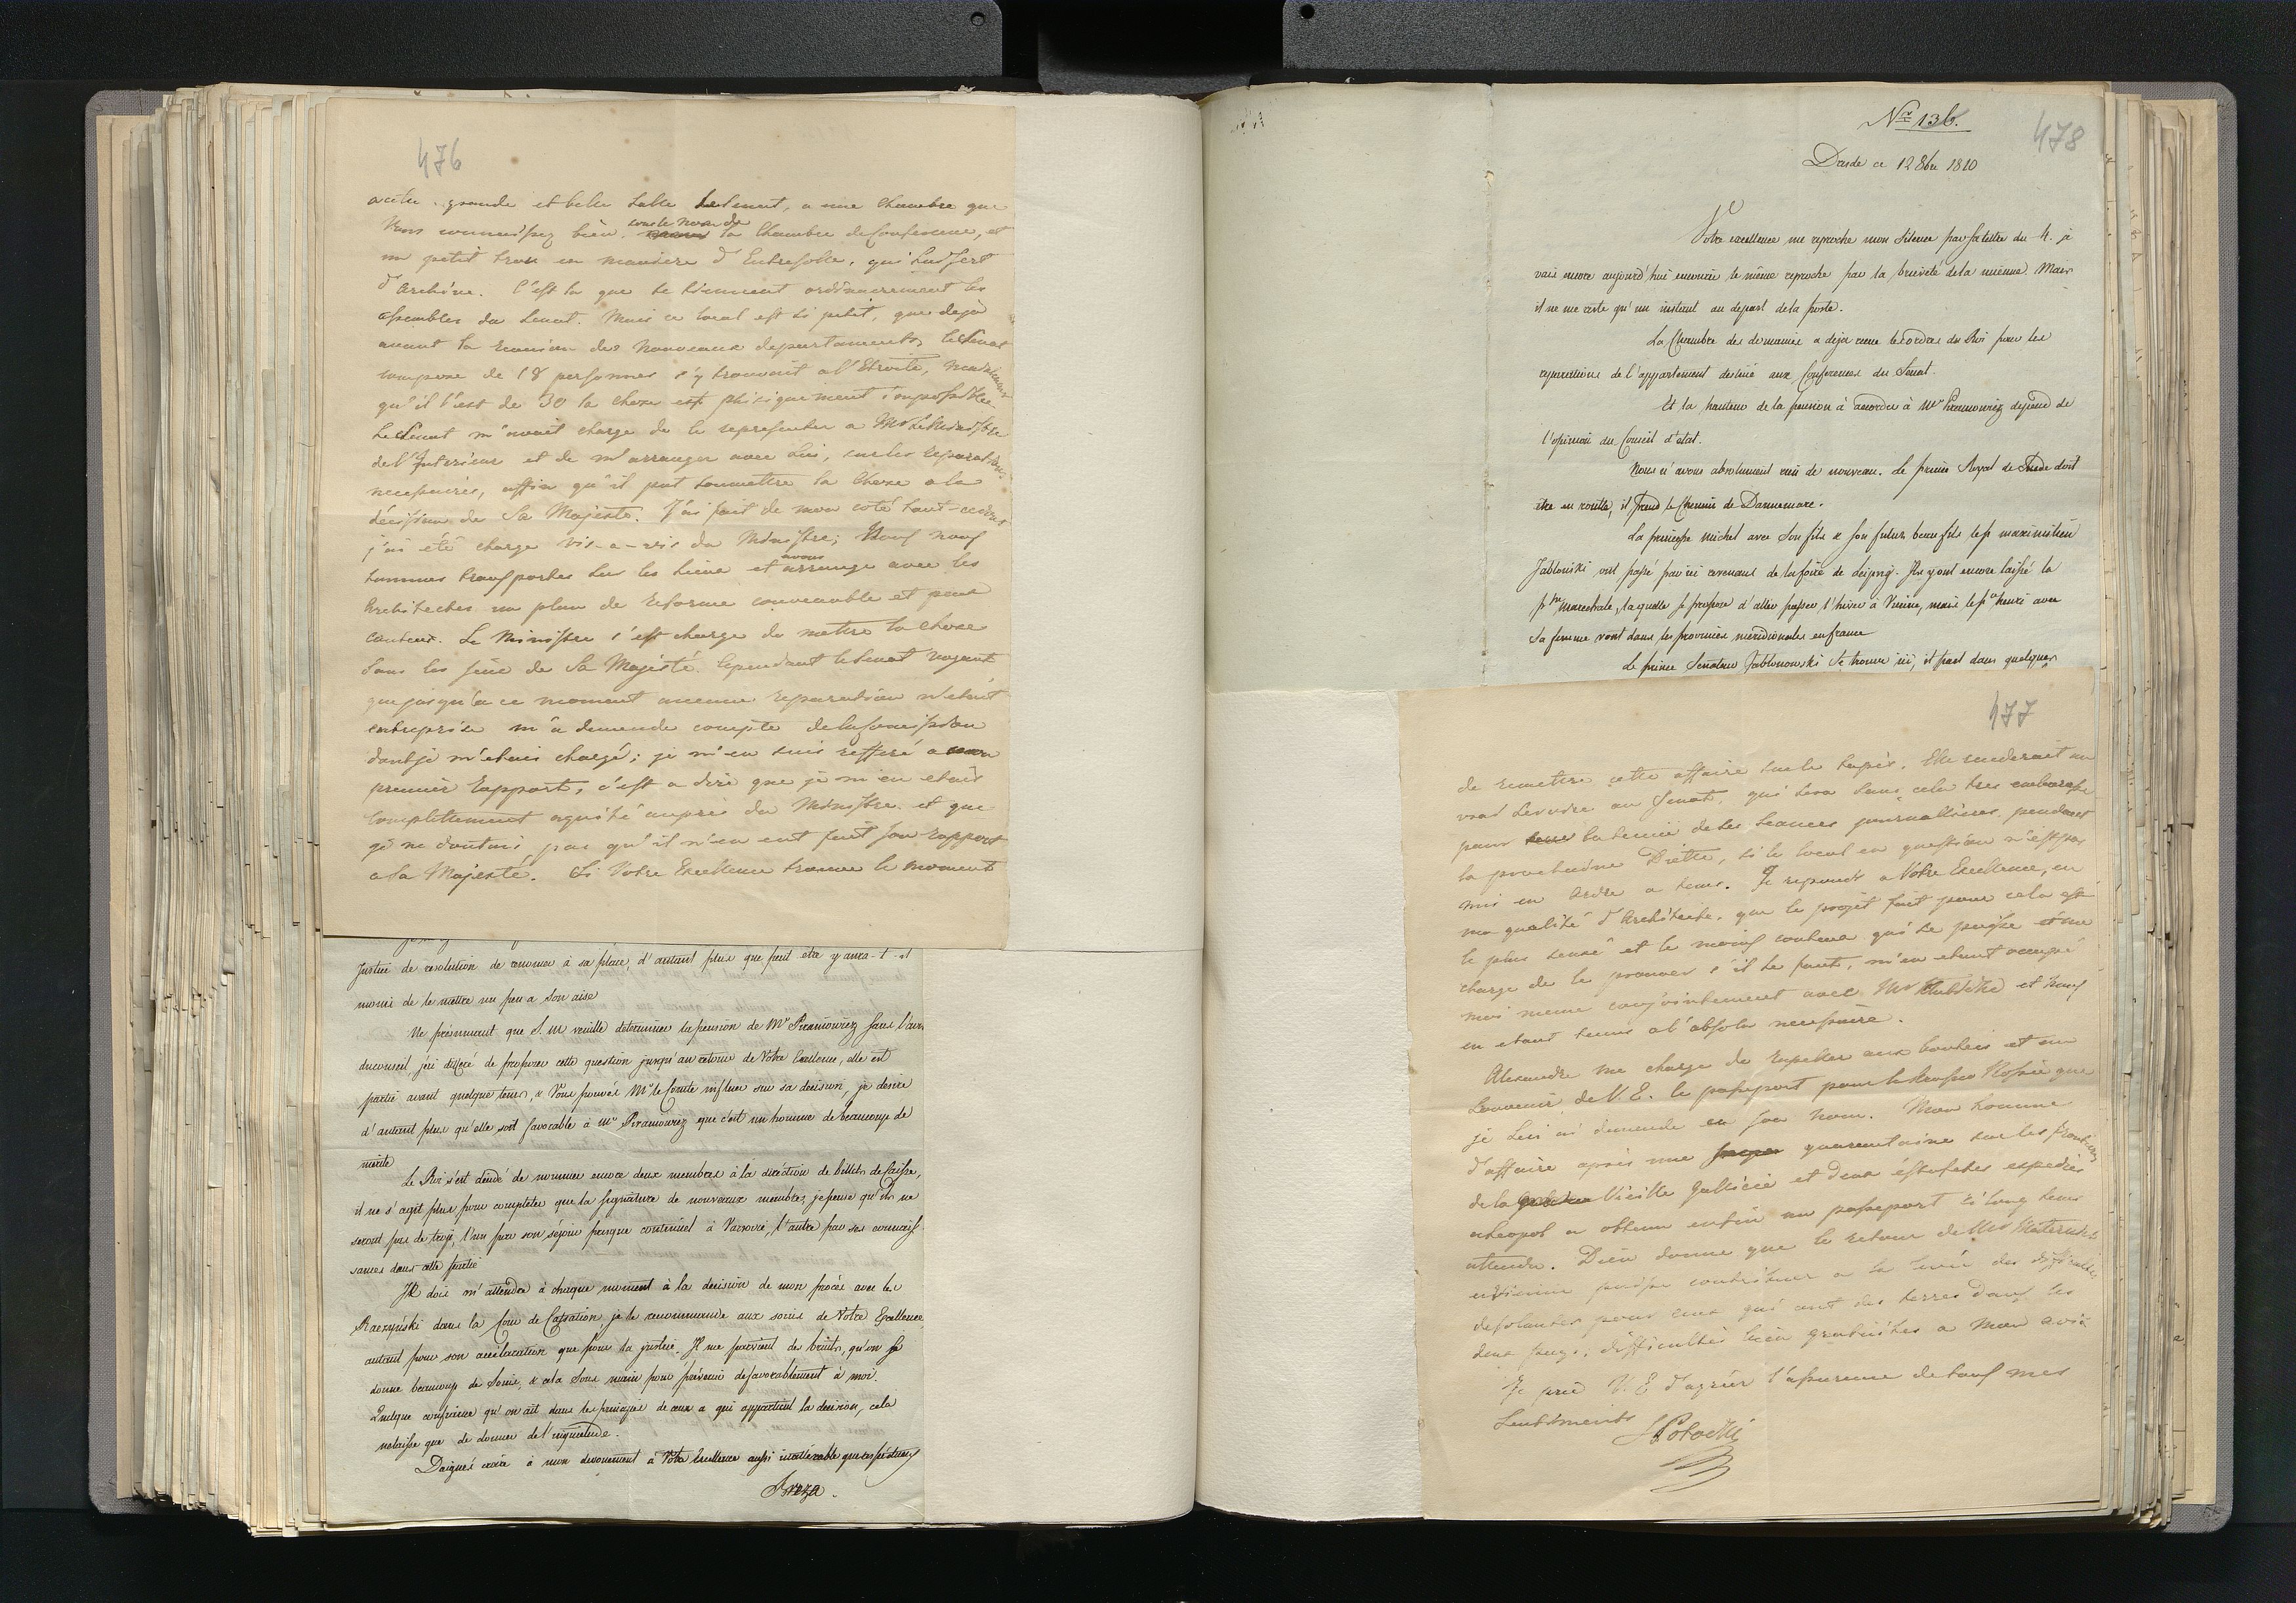 476
a cette grande et belle Salle le Senat, a une Chambre que
Vous connoissez bien sous le Nom de la Chambre de Conference, et
un petit trou en maniere d'Entresolle, qui lui sert
d'Archive. C'est la que se tiennent ordinairement les
assemblés du Senat. Mais ce local est si petit, que deja
avant la reunion des Nouveaux departaments, le Senat
compose de 18 personnes s'y trouvoit a l'Etroite, maintenant
qu'il l'est de 30 la chose est phisiquement impossible
Le Senat m'avoit charge de le representer a Mr le Ministre
de l'Interieur et de m'arranger avec Lui, sur les reparations
necessaires, affin qu'il put soumettre la Chose a la
décision de Sa Majesté. J'ai fait de mon coté tout ce dont
j'ai été charge vis-a-vis du Ministre; Nous nous
sommes transportes sur les lieux et avons arrange avec les
Architectes un plan de Reforme convenable et peu
couteux. Le Ministre s'est charge de mettre la chose
sous les yeux de Sa Majesté. Cependant le Senat voyant
que jusqu'a ce moment aucune reparation n'etoit
entreprise m'a demende compte de la comission
dont je m'etois chargé; je m'en suis refferé a mon
premier Rapport, c'est a dire que je m'en etois
complettement aquité aupres du Ministre et que
je ne doutois pas qu'il n'en eut fait son rapport
a Sa Majesté. Si Votre Excellence trouve le moment
Justice de resolution de renoncer à sa place, d'autant plus que peut etre y aura-t-il
moyen de le mettre un peu a son aise
Ne présumant que S. M veuille determiner la pension de Mr Piramowicz sans l'avis
du conseil, j'ai differé de proposer cette question jusqu'au retour de Votre Excellence, elle est
partie avant quelque tems, & Vous pouvés Mr le Comte influer sur sa decision, je desire
d'autant plus qu'elle soit favorable à Mr Piramowicz que c'est un homme de beaucoup de
merite
Le Roi s'est décidé de nommer encore deux membres à la direction de billets de Caisse,
il ne s'agit plus pour completter que la signature de nouveaux membres, je pense qu'ils ne
seront pas de trop, l'un par son séjour presque continuel à Varsovie, l'autre par ses connois-
sances dans cette partie
Je dois m'attendre à chaque moment à la decision de mon procès avec les
Raczyński dans la Cour de Cassation, je le recommande aux soins de Votre Excellence
autant pour son accélération que pour la justice. Il me parvient des bruits, qu'on se
donne beaucoup de Soins, & cela sous main pour prévenir défavorablement à moi.
Quelque confience qu'on ait dans les principes de ceux a qui appartient la decision, cela
ne laisse que de donner de l'inquietude.
Daignés croire à mon devouement à Votre Excellence aussi inaltérable que respectueux
Breza.
Nro 136.
478
Dresde ce 12 8bre 1810
Votre excellence me reproche mon Silence par sa lettre du 4. je
vais encore aujourd'hui encourir le même reproche par la brieveté de la mienne. Mais
il ne me reste qu'un instant au depart de la poste.
La Chambre des domaines a deja reçue les ordres du Roi pour les
reparations de l'appartement destiné aux Conferences du Senat.
Et la hauteur de la pension à accorder à Mr Piramowicz depend de
l'opinion du Conseil d'etat.
Nous n'avons absolument rien de nouveau. Le prince Royal de Suede doit
etre en route, il prend le Chemin de Dannemarc.
La princesse Michel avec son fils & son futur beau fils le p. maximilien
Jablonski ont passé par ici revenant de la foire de Leipzig. Ils y ont encore laissé la
psse Marechale, laquelle se propose d'aller passer l'hiver à Vienne, mais le pce henri avec
sa femme vont dans les provinces meridionales en france
Le prince Senateur Jablonowski se trouve ici, il part dans quelques
477
de remettre cette affaire sur le tapis. Elle renderoit un
vrai service au Senat, qui sera sans cela tres embarasse
pour la tenue de ses seances journallieres, pendant
la prochaine Diette, si le local en question n'est pas
mis en ordre a tems. Je reponds a Votre Excellence, en
ma qualité d'Architecte, que le projet fait pour cela est
le plus sensé et le moins couteux qui se puisse et me
charge de le prouver s'il le faut, m'en etant occupé
moi meme conjointement avec Mr Kubicki et nous
en etant tenus a l'absolu necessaire.
Alexandre me charge de rapeller aux bontées et au
Souvenir de V. E. le passeport pour la Prusse Rossie que
je Lui ai demende en son nom. Mon homme
d'affaire apres une quarentaine sur les frontieres
de la Vieille Gallicie et deux éstafetes expediés
a Leopol a obtenu enfin un passeport si long tems
attendu. Dieu donne que le retour de Mr Materniks
a Vienne puisse contribuer a la levée des difficultés
desolantes pour ceux qui ont des terres dans les
deux pays, difficultés bien gratuites a mon avis
Je prie V. E d'agréer l'assurance de tous mes
Sentiments
S Potocki